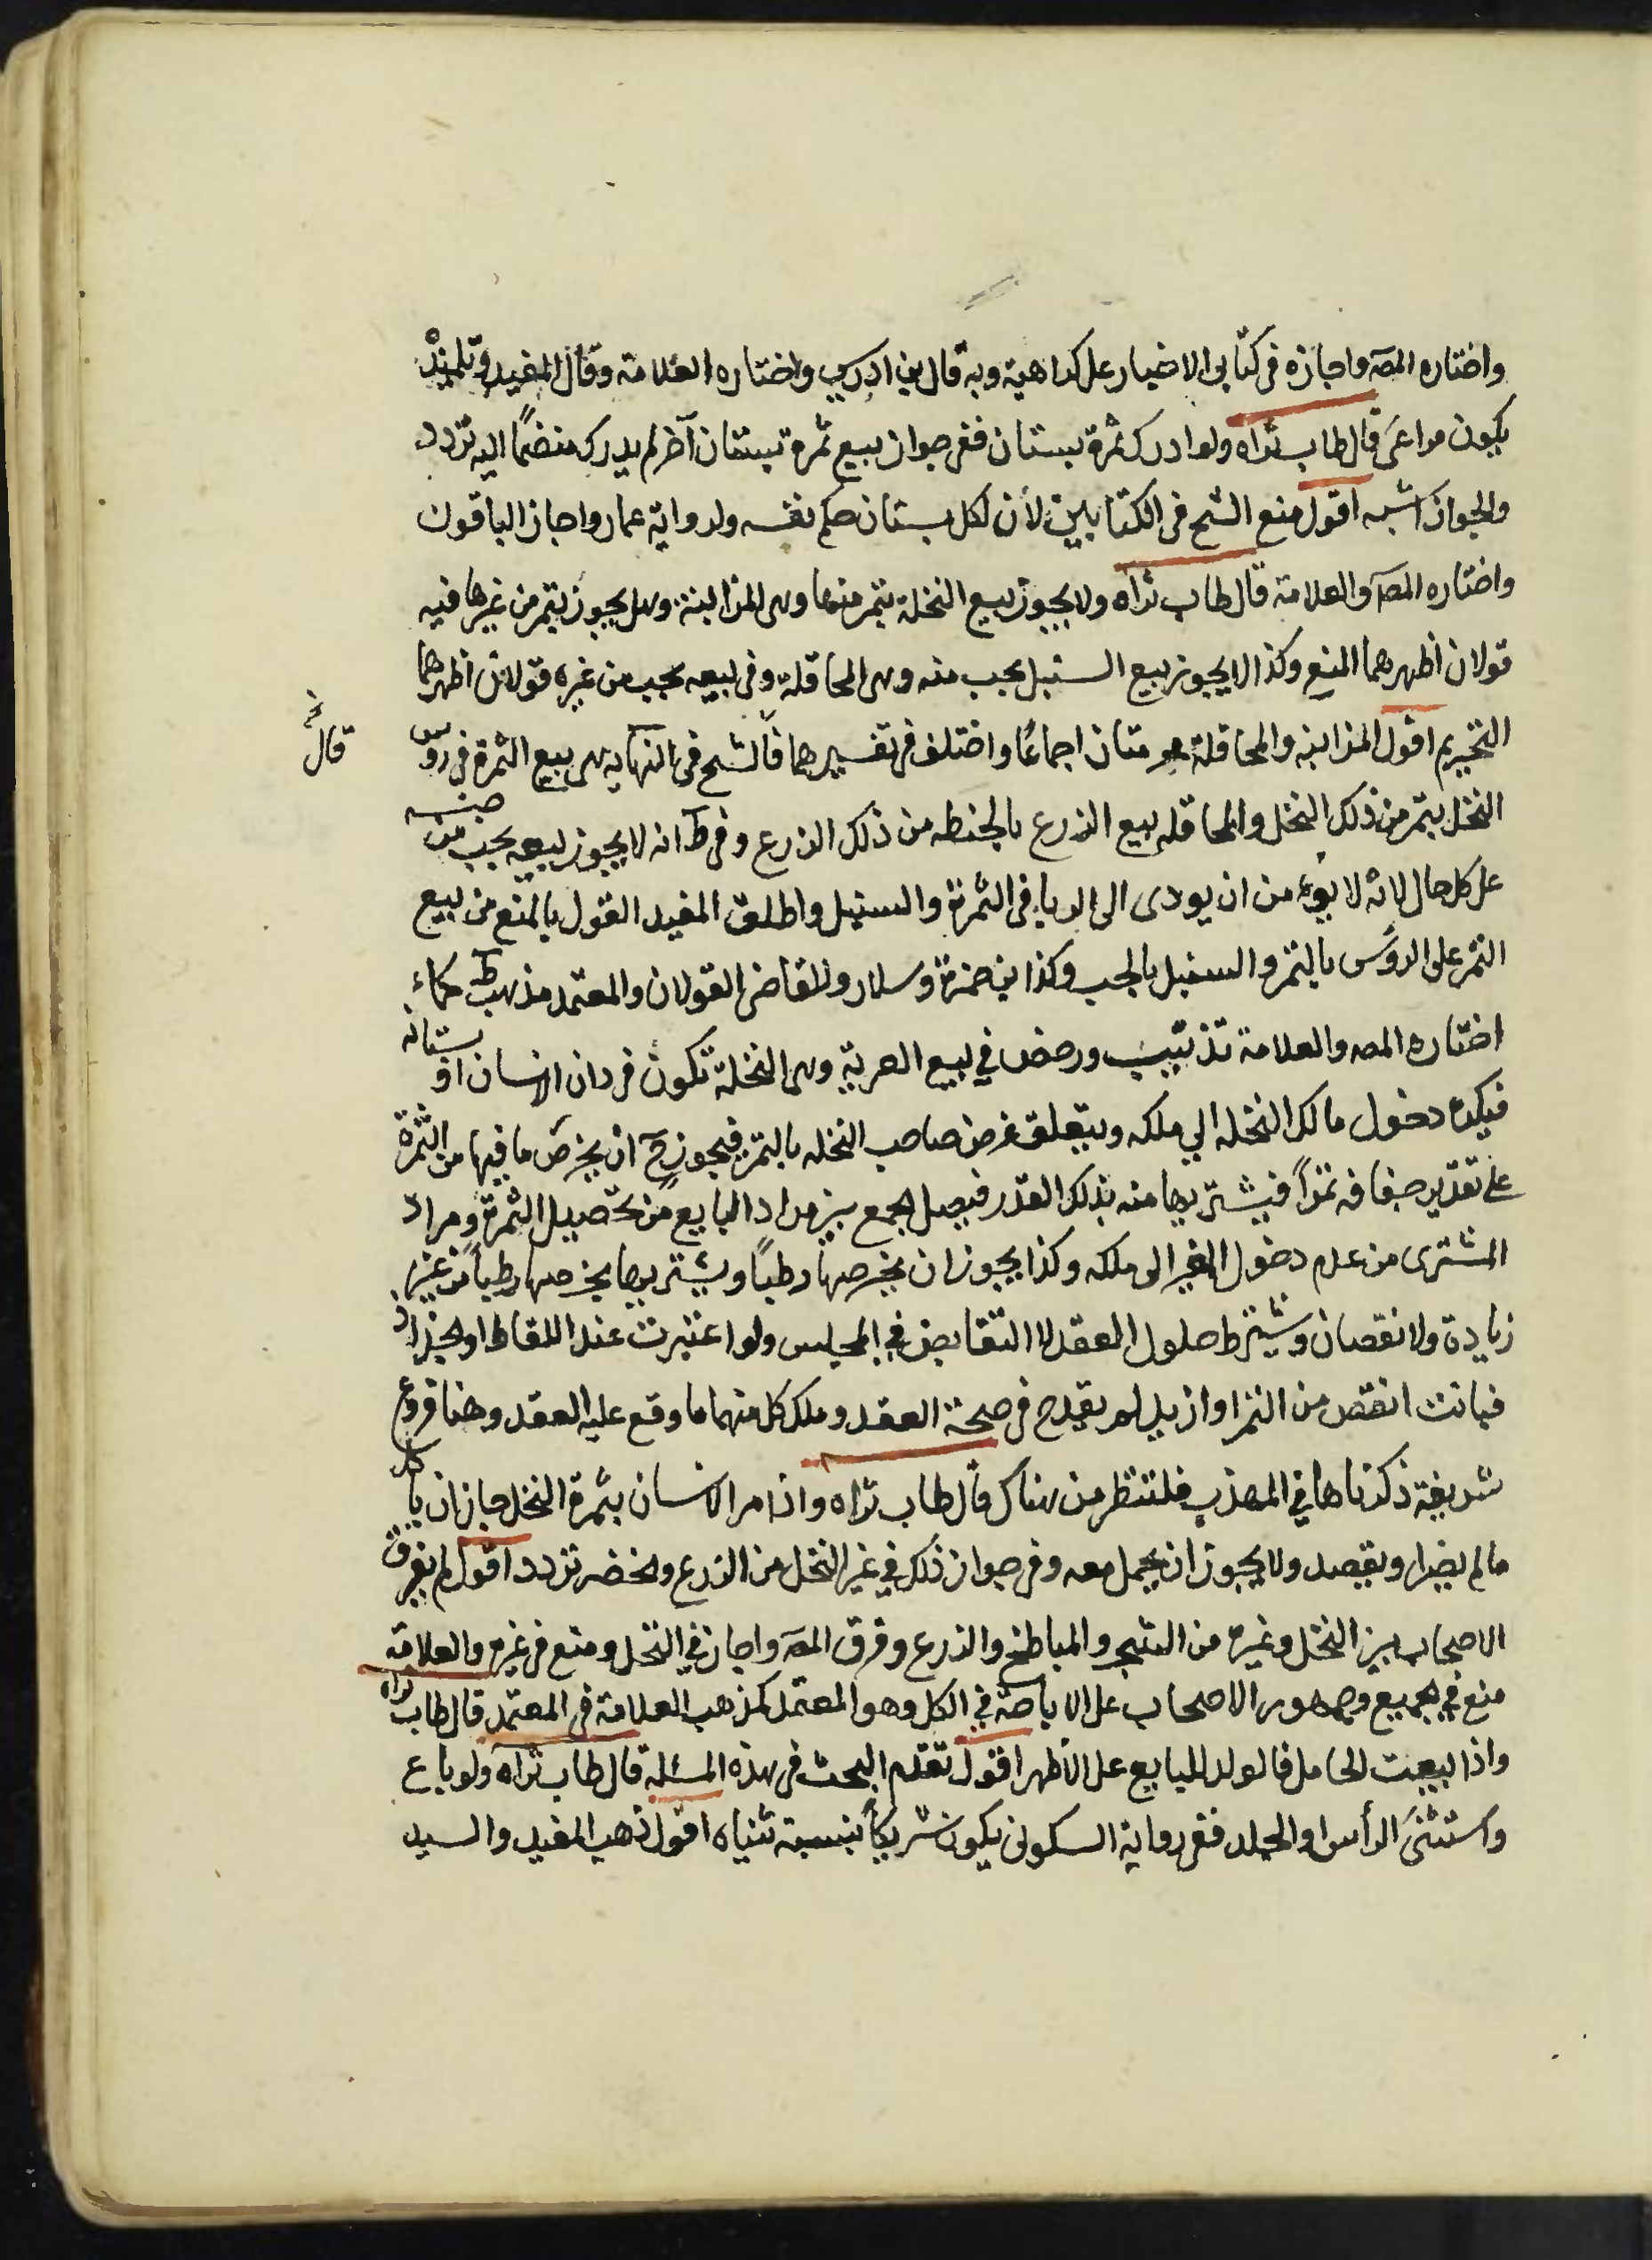 واختاره المصه واجازه في كتابي الاخبار على كراهية وبه قال بن ادريس واختاره العلامة وقال المفيد وتلميذه
يكون مراعى قال طاب ثراه ولو ادرك ثمرة بستان ففي جواز بيع ثمرة بستان آخر لم يدرك منضمًا اليه تردد
والجواز اشبه اقول منع الشيخ في الكتابين لأن لكل بستان حكم نفسه ولرواية عمار واجاز الباقون
واختاره المصه والعلامة قال طاب ثراه ولا يجوز بيع النخلة بتمر منها وهي المزابنة وهل يجوز بتمر من غيرها فيه
قولان اظهرهما المنع وكذا لا يجوز بيع السنبل بحب منه وهي المحاقلة وفي بيعه بحب من غيره قولان اظهرهما
التحريم اقول المزابنه والمحاقلة محرمتان اجماعًا واختلف في تفسيرهما فالشيخ في النهايه هي بيع الثمرة في روس
قال
النخل بتمر من ذلك النخل والمحاقله بيع الزرع بالحنطه من ذلك الزرع وفي ط انه لا يجوز بيعه بحب من جنسه
على كل حال لانه لا يؤمن ان يودى الى الربا في الثمرة والسنبل واطلق المفيد القول بالمنع من بيع
الثمر على الروس بالتمر والسنبل بالحب وكذا بن حمزة وسلار وللقاضي القولان والمعتمد مذهب ط كما
اختاره المصه والعلامة تذنيب ورخص في بيع العرية وهي النخلة تكون في دار الانسان او بستانه
فيكره دخول مالك النخله الي ملكه ويتعلق غرض صاحب النخله بالتمر فيجوز ح ان يخرص ما فيها من الثمرة
على تقدير جفافه تمرًا فيشتريها منه بذلك القدر فيصل الجمع بين مراد البايع من تحصيل الثمرة ومراد
المشترى من عدم دخول الغير الى ملكه وكذا يجوز ان يخرصها رطبًا ويشتريها بخرصها رطبًا من غير
زيادة ولا نقصان ويشترط حلول العقد لا التقابض في المجلس ولو اعتبرت عند اللقاط او الجذاذ
فبانت انقص من التمر او ازيد لم يقدح في صحة العقد وملك كل منهما ما وقع عليه العقد وهنا فروع
شريفة ذكرناها في المهذب فلتنظر من هناك قال طاب ثراه واذا مر الانسان بثمرة النخل جاز ان ياكل
مالم يضر او يقصد ولا يجوز ان يحمل معه وفي جواز ذلك في غير النخل من الزرع والخضر تردد اقول لم يفرق
الاصحاب بين النخل وغيره من الشجر والمباطخ والزرع وفرق المصه واجاز في النخل ومنع في غيره والعلامة
منع في الجميع وجمهور الاصحاب على الاباحة في الكل وهو المعتمد كمذهب العلامة في المعتمد قال طاب ثراه
واذا بيعت الحامل فالولد للبايع على الأظهر اقول تقدم البحث في هذه المسئله قال طاب ثراه ولو باع
واستثنى الرأس او الجلد ففي رواية السكوني يكون شريكًا بنسبة ثنياه اقول ذهب المفيد والسيد